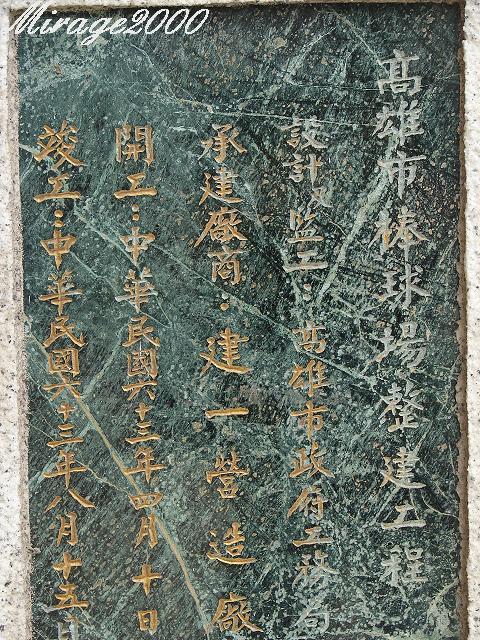 Mirage2000
高雄市棒球場整建工程
設計及監工：高雄市政府工務局
承建廠商：建一營造廠
開工：中華民國六十三年四月十日
竣工：中華民國六十三年八月十五日